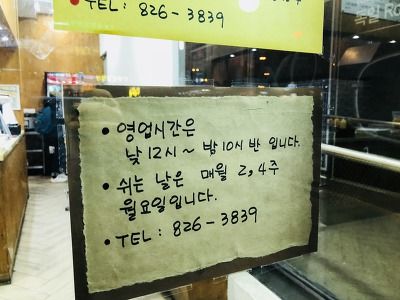 • TEL : 826-3839
• 영업시간은
낮 12시 ~ 밤 10시 반 입니다.
• 쉬는 날은 매월 2, 4주
월요일입니다.
• TEL : 826-3839